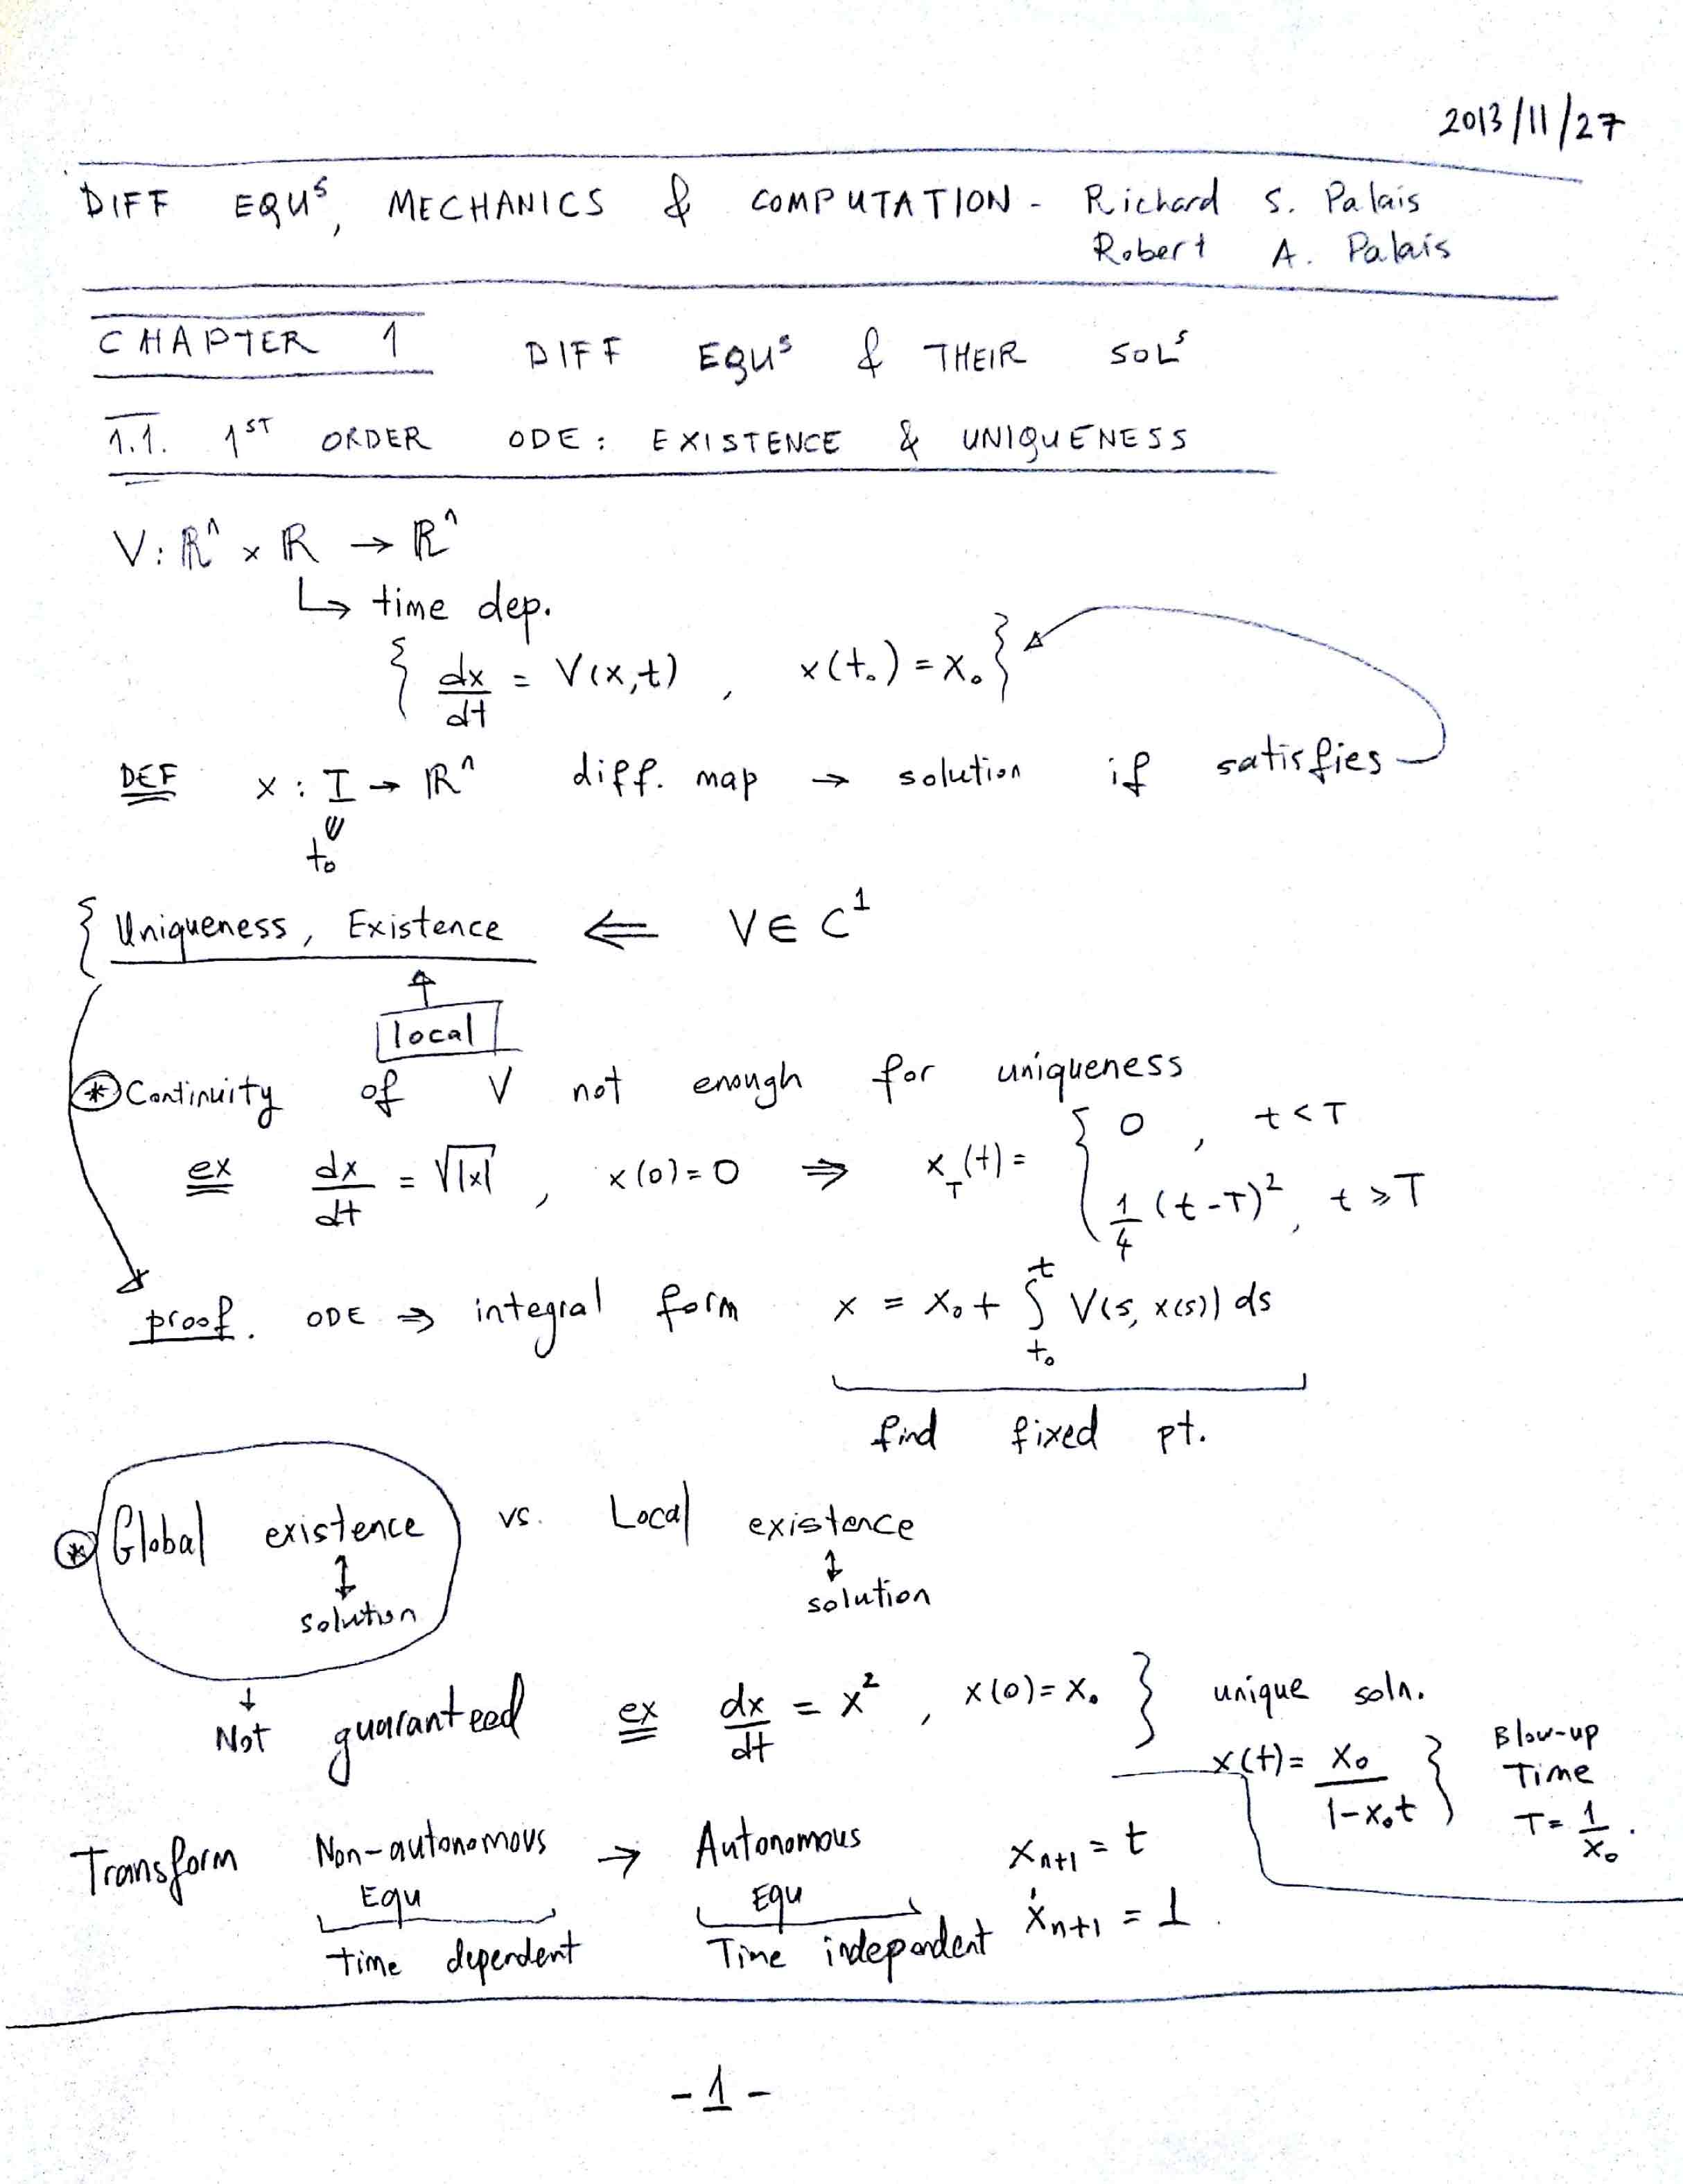 2013/11/27
DIFF EQUˢ, MECHANICS & COMPUTATION - Richard S. Palais
Robert A. Palais
CHAPTER 1 DIFF EQUˢ & THEIR SOLˢ
1.1. 1ˢᵀ ORDER ODE: EXISTENCE & UNIQUENESS
V: ℝⁿ × ℝ → ℝⁿ
↳ time dep.
{ dx/dt = V(x,t) , x(t₀) = x₀ }
DEF x : I → ℝⁿ diff. map → solution if satisfies
t₀
{ Uniqueness, Existence ⇐ V ∈ C¹
↑
local
* Continuity of V not enough for uniqueness
ex dx/dt = √|x| , x(0) = 0 ⇒ x_T(t) = { 0 , t < T
1/4 (t-T)² , t ≥ T
proof. ODE ⇒ integral form x = x₀ + ∫_{t₀}^{t} V(s, x(s)) ds
find fixed pt.
* Global existence vs. Local existence
↕ ↕
solution solution
↓
Not guaranteed ex dx/dt = x² , x(0) = x₀ } unique soln.
x(t) = x₀/(1-x₀t) } Blow-up Time T = 1/x₀ .
Transform Non-autonomous Equ → Autonomous Equ x_{n+1} = t
time dependent Time independent ẋ_{n+1} = 1 .
- 1 -